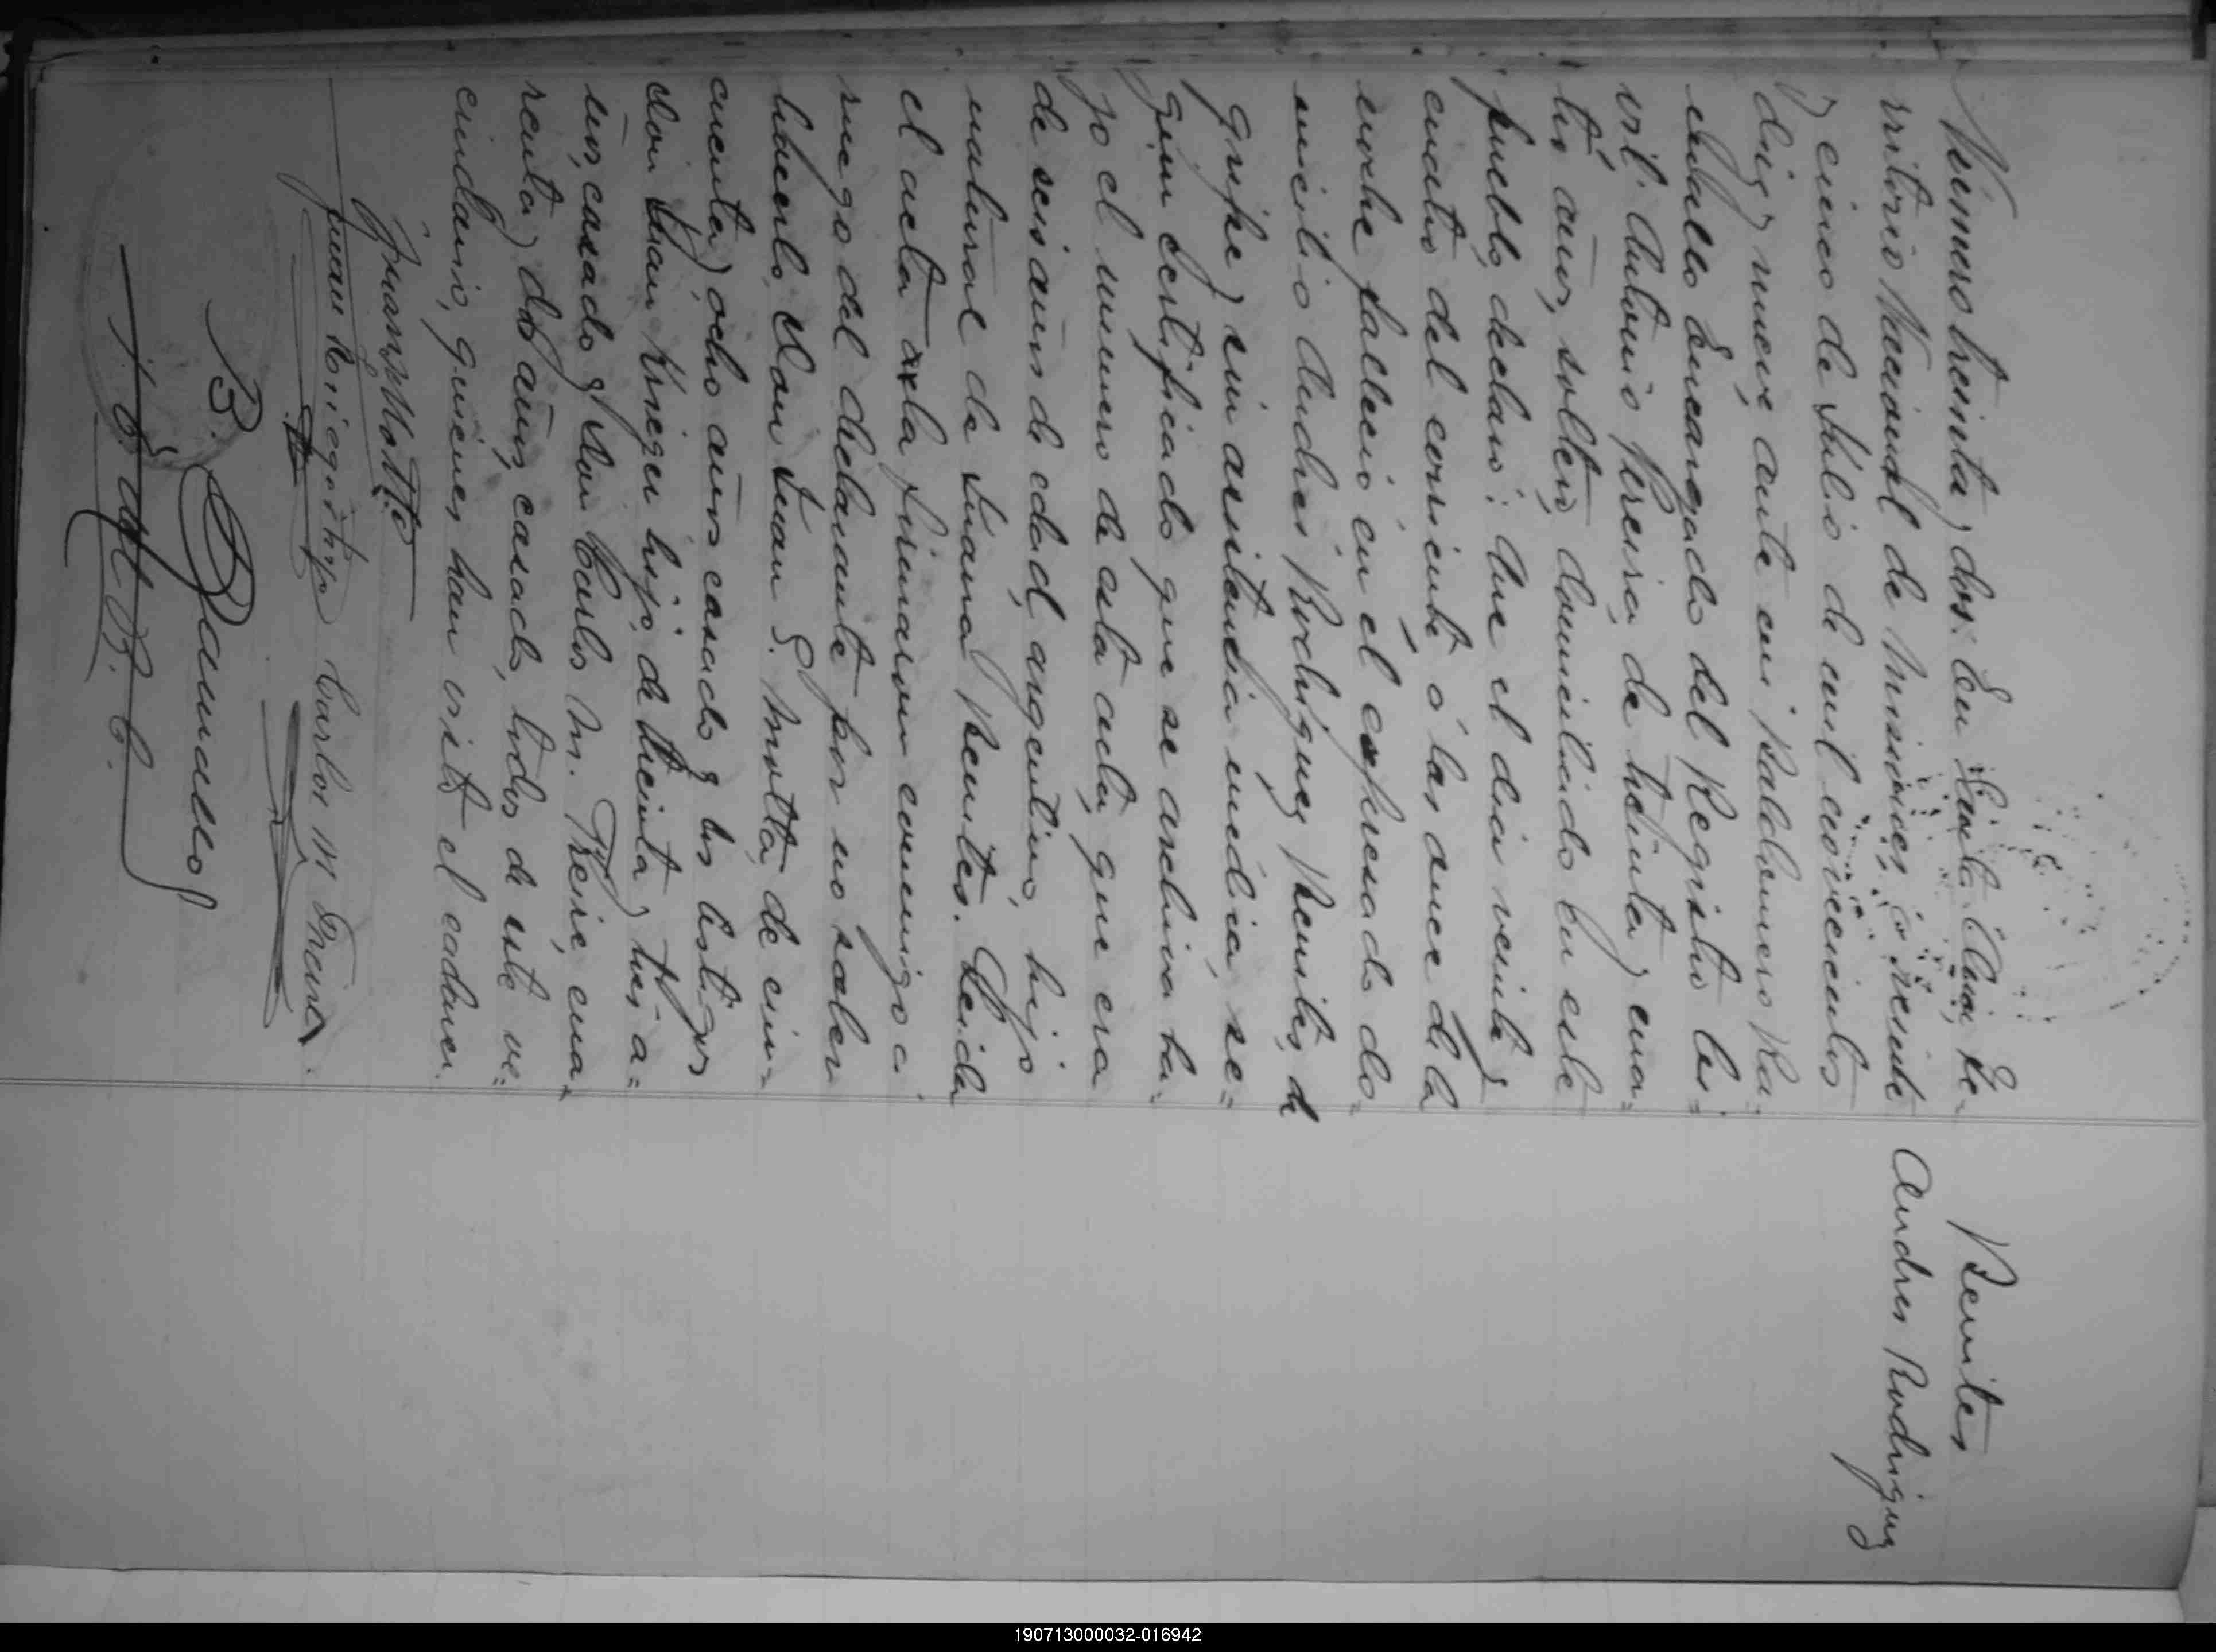 Número treinta y dos: En Santa Ana, Te-
rritorio Nacional de Misiones, á veinte
y cinco de Julio de mil novecientos
diez y nueve, ante mi Baldomero Ra-
mallo Encargado del Registro Ci-
vil: Antonio Pereira, de treinta y cua-
tro años, soltero, domiciliado en este
pueblo, declaró: Que el dia veinte y
cuatro del corriente á las once de la
noche falleció en el expresado do-
micilio Andres Rodriguez Benites, de
gripe y sin asistencia médica, se-
gun certificado que se archiva ba-
jo el número de esta acta, que era
de seis años de edad, argentino, hijo
natural de Juana Benites. Leida
el acta la firmaron conmigo a
ruego del declarante por no saber
hacerlo, Don Juan S. Motta, de cin-
cuenta y ocho años casado y los testigos
don Juan Krieger hijo, de treinta y tres a-
ños, casado y Don Carlos M.
renta y dos años, casado, todos de este ve-
cindario, quienes han visto el cadaver.
Juan S Motta
Juan Krieger hijo Carlos M
B. Ramallo
J. E. del R. C.
Benites
Andres Rodriguez
190713000032-016942